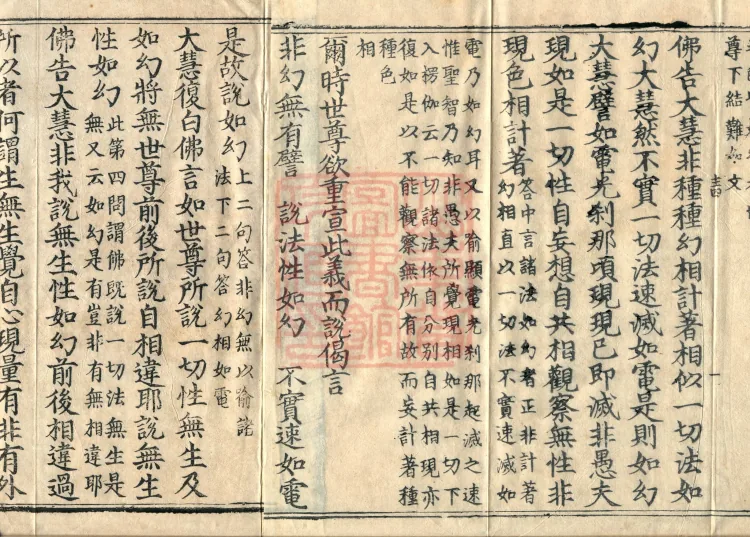 尊下結難如文
佛告大慧非種種幻相計著相似一切法如
幻大慧然不實一切法速滅如電是則如幻
大慧譬如電光刹那頃現現已即滅非愚夫
現如是一切性自妄想自共相觀察無性非
現色相計著答中言諸法如幻者正非計著
幻相直以一切法不實速滅如
電乃如幻耳又以喻顯電光刹那起滅之速
惟聖智乃知非愚夫所覺現相如是一切下
入楞伽云一切諸法依自分別自共相現亦
復如是以不能觀察無所有故而妄計著種
種色
相
爾時世尊欲重宣此義而說偈言
非幻無有譬　說法性如幻　不實速如電
是故說如幻上二句答非幻無以喻諸
法下二句答幻相如電
大慧復白佛言如世尊所說一切性無生及
如幻將無世尊前後所說自相違耶說無生
性如幻此第四問謂佛既說一切法無生是
無又云如幻是有豈非有無相違耶
佛告大慧非我說無生性如幻前後相違過
所以者何謂生無生覺自心現量有非有外